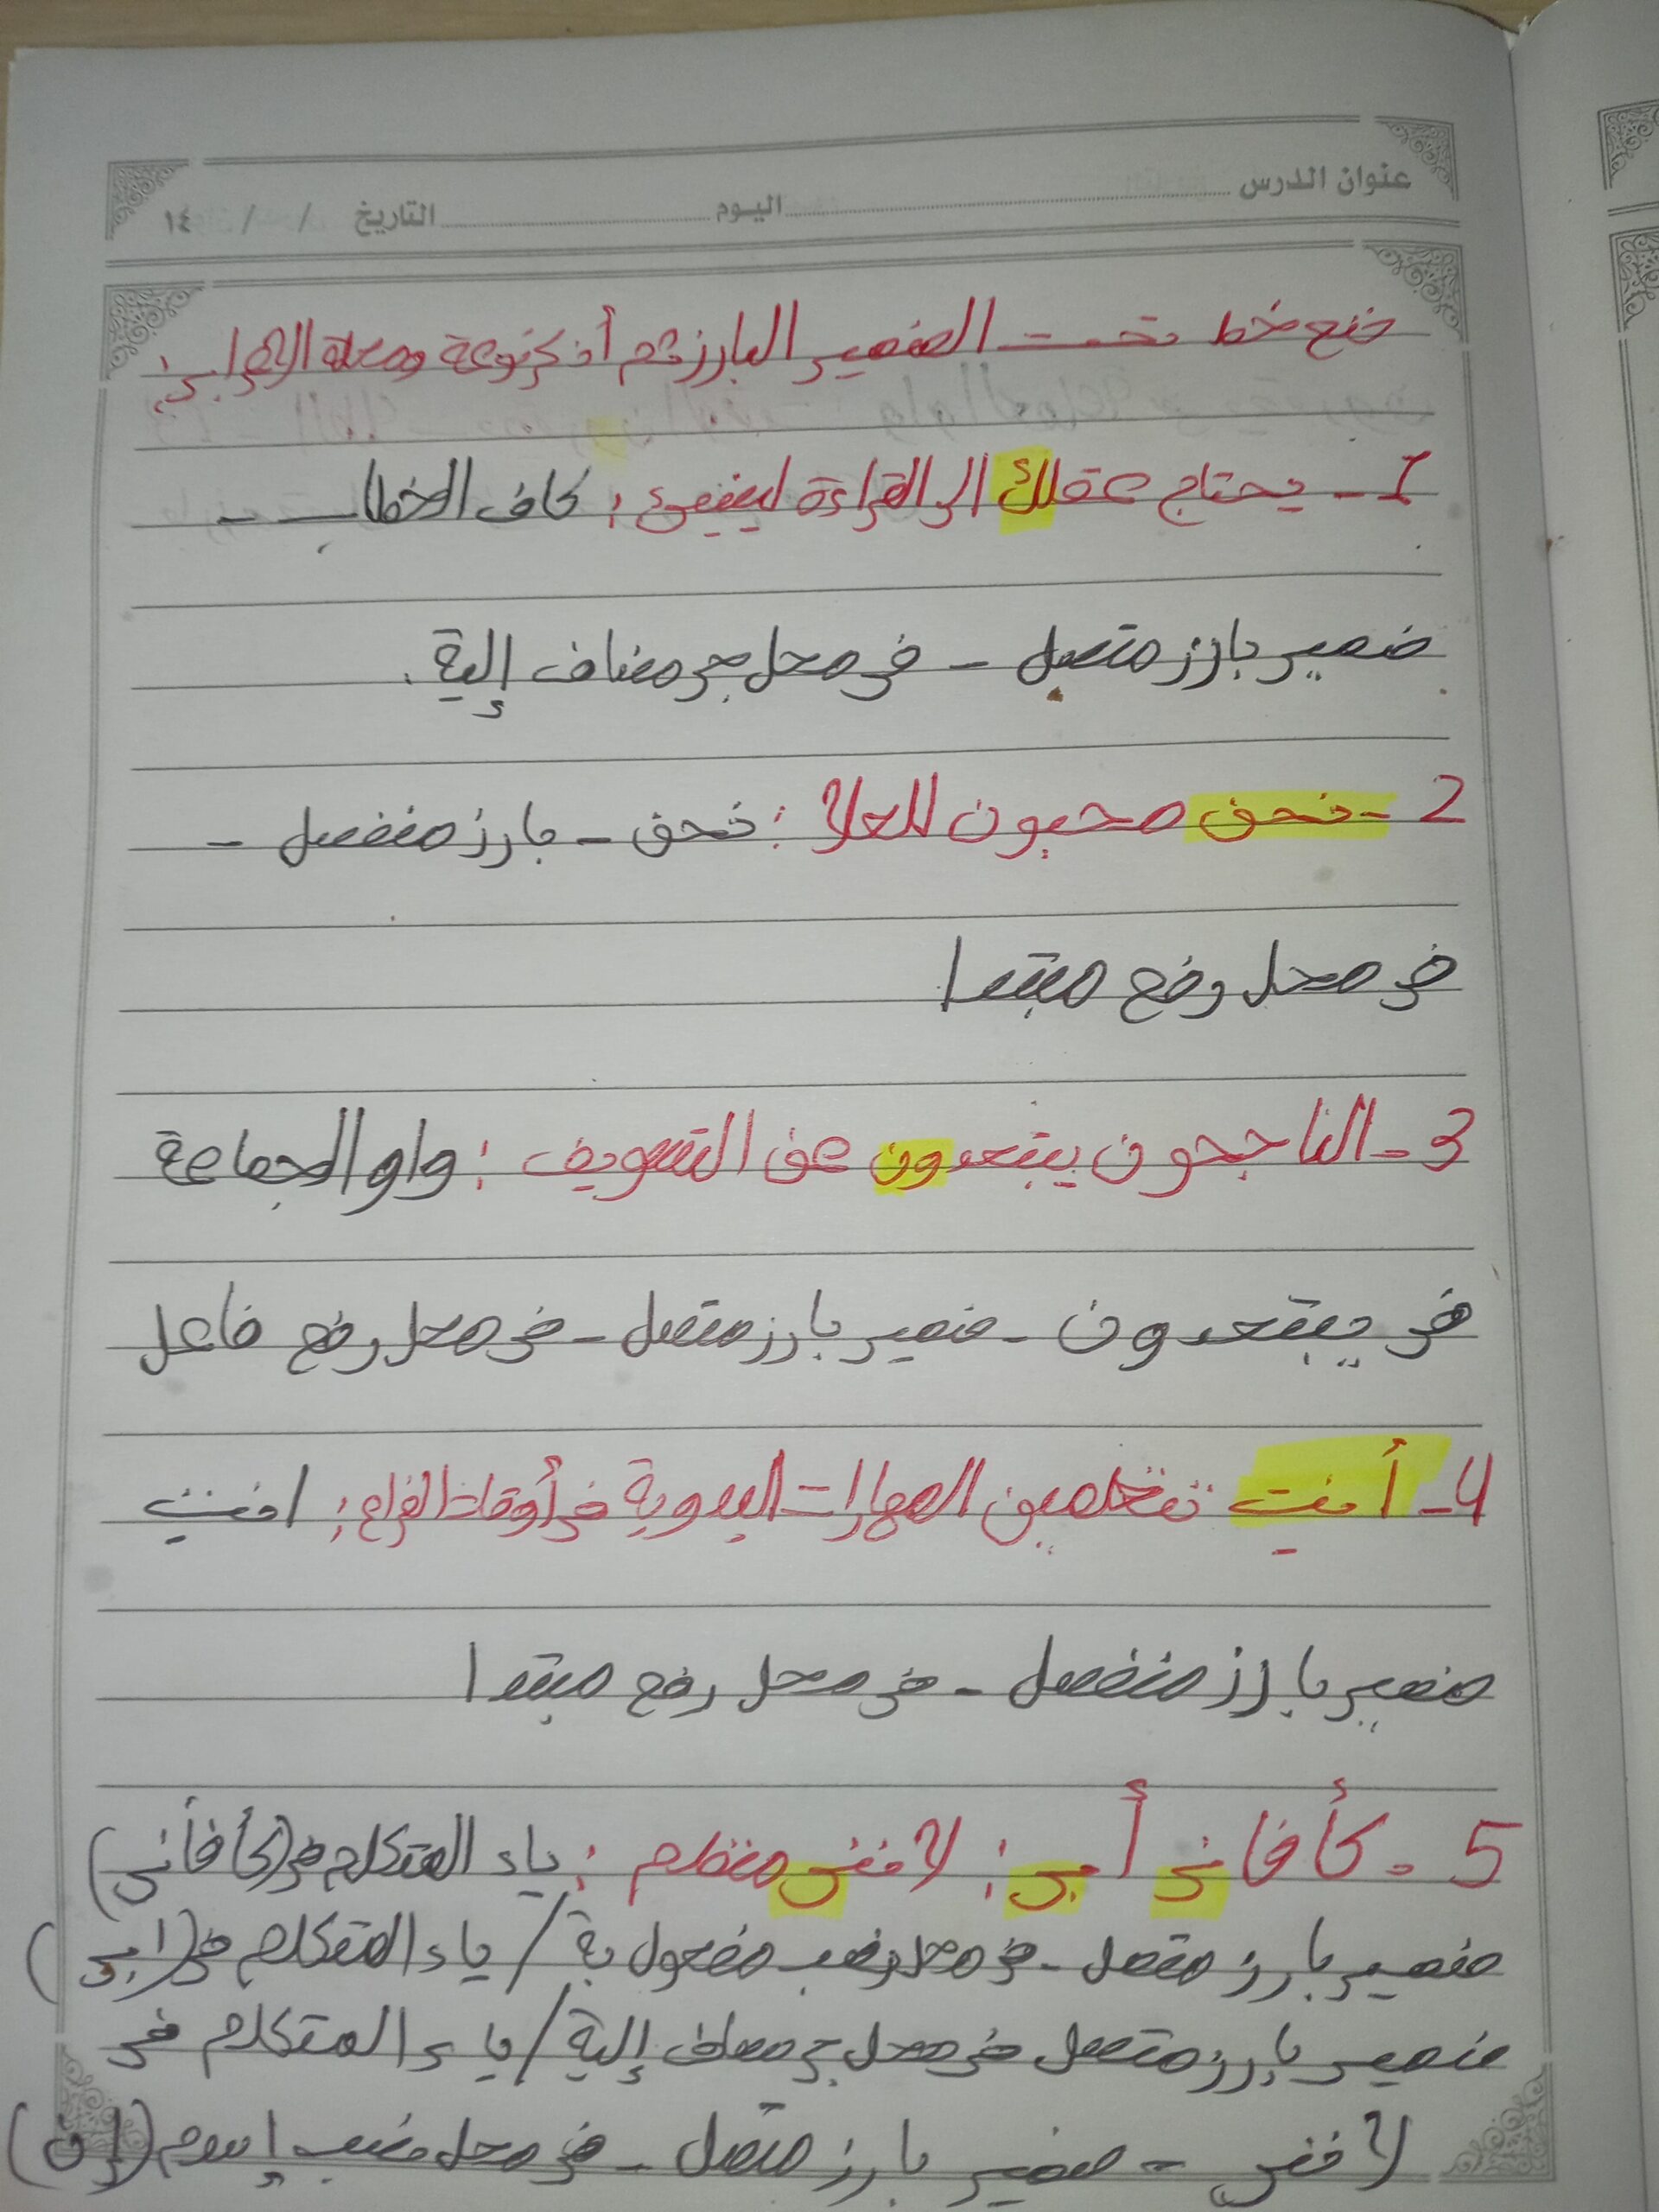 عنوان الدرس
اليوم
التاريخ / / ١٤
ضع خط تحت الضمير البارز ثم أذكر نوعة ومحلة الإعرابي:
1- يحتاج عقلك الى القراءة ليضيئ: كاف الخطاب -
ضمير بارز متصل - في محل جر مضاف إلية.
2- نحن محبون للعلا: نحن - بارز منفصل -
في محل رفع مبتدا
3- الناجحون يبتعدون عن التسويف: واو الجماعة
في يبتعدون - ضمير بارز متصل - في محل رفع فاعل
4- أنتِ تتعلمين المهارات اليدوية في أوقات الفراغ: انتِ
ضمير بارز منفصل - في محل رفع مبتدا
5- كأفاني أبي: لأنني منظم: ياء المتكلم في (كأفأني)
ضمير بارز متصل - في محل نصب مفعول بة / ياء المتكلم في (ابي)
ضمير بارز متصل في محل جر مضاف إلية / ياء المتكلم في
لأنني - ضمير بارز متصل - في محل نصب إسم (إن)